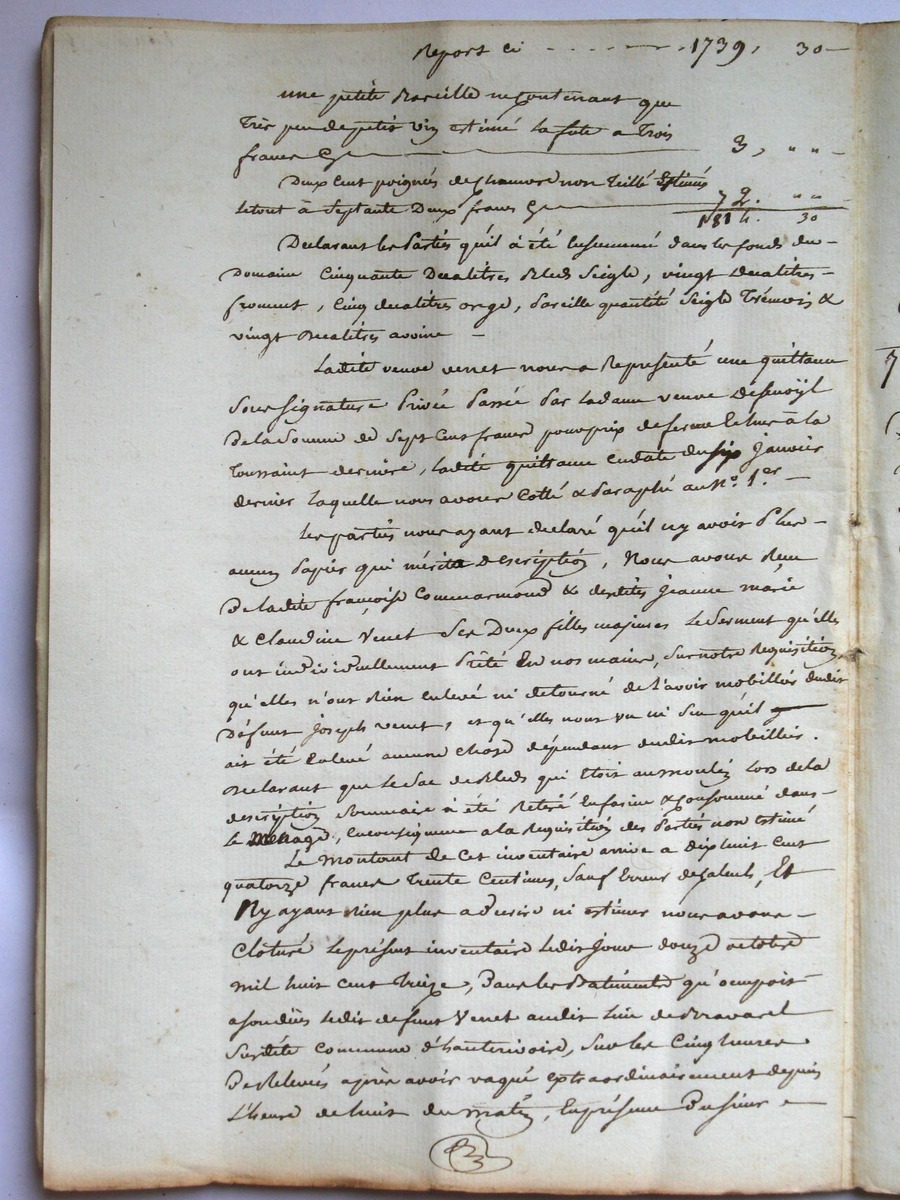 Report ci - - - - - - 1739, 30
une petite Bareille ne contenant que
Très peu de petit vin estimé la fute a Trois
francs Cy 3, " "
Deux Cent poignés de Chanvre non Teillé Estimés
le tout à Septante Deux francs Cy 72. " "
1814. 30
Declarant les Parties qu'il à été Ensemmencé dans les fonds du
Domaine Cinquante Decalitres Bled Seigle, vingt decalitres
froment, Cinq decalitres orge, Pareille quantité Seigle Trémois &
vingt Decalitres avoine
Ladite veuve venet nous a Représenté une quittance
Sous Signature Privée Passée Par la dame veuve
De la Somme de Sept Cent francs pour prix de ferme Echus à la
Toussaint derniere, ladite quittance en date du six Janvier
dernier laquelle nous avons Cotté & Paraphé au N°. 1.er
les parties nous ayant declaré qu'il ny avoit Plus
aucun Papier qui mérita description, Nous avons Reçu
De ladite françoise Commarmond & desdites Jeanne marie
& Claudine Venet Ses Deux filles majeures Le Serment qu'elles
ont individuellement Prêté En nos mains, Sur notre Requisition,
qu'elles n'ont Rien enlevé ni detourné de l'avoir mobillier dudit
Défunt Joseph venet, et qu'elles n'ont vu ni Su qu'il
ait été Enlevé aucune chose dépendant dudit mobillier.
Declarant que le Sac de Bled qui Etoit au moulin lors de la
description Sommaire à été Retiré En farine & Consommé dans
le Menage, En consequence a la Requisition des Parties non Estimé
Le Montant de cet inventaire arrive a dixhuit cent
quatorze francs Trente Centimes, Sauf Erreur de Calculs, Et
Ny ayant Rien plus a Decrire ni estimer nous avons
Clôturé le présent inventaire ledit Jour douze octobre
mil huit cent Treize, Dans les Batiments qu'ocupoit
ledit defunt Venet audit Lieu de Bravarel
Susdite Commune d'hauterivoire, Sur les Cinq heures
De Relevée après avoir vaqué extraordinairement depuis
L'heure de huit du matin, En présence Du Sieur